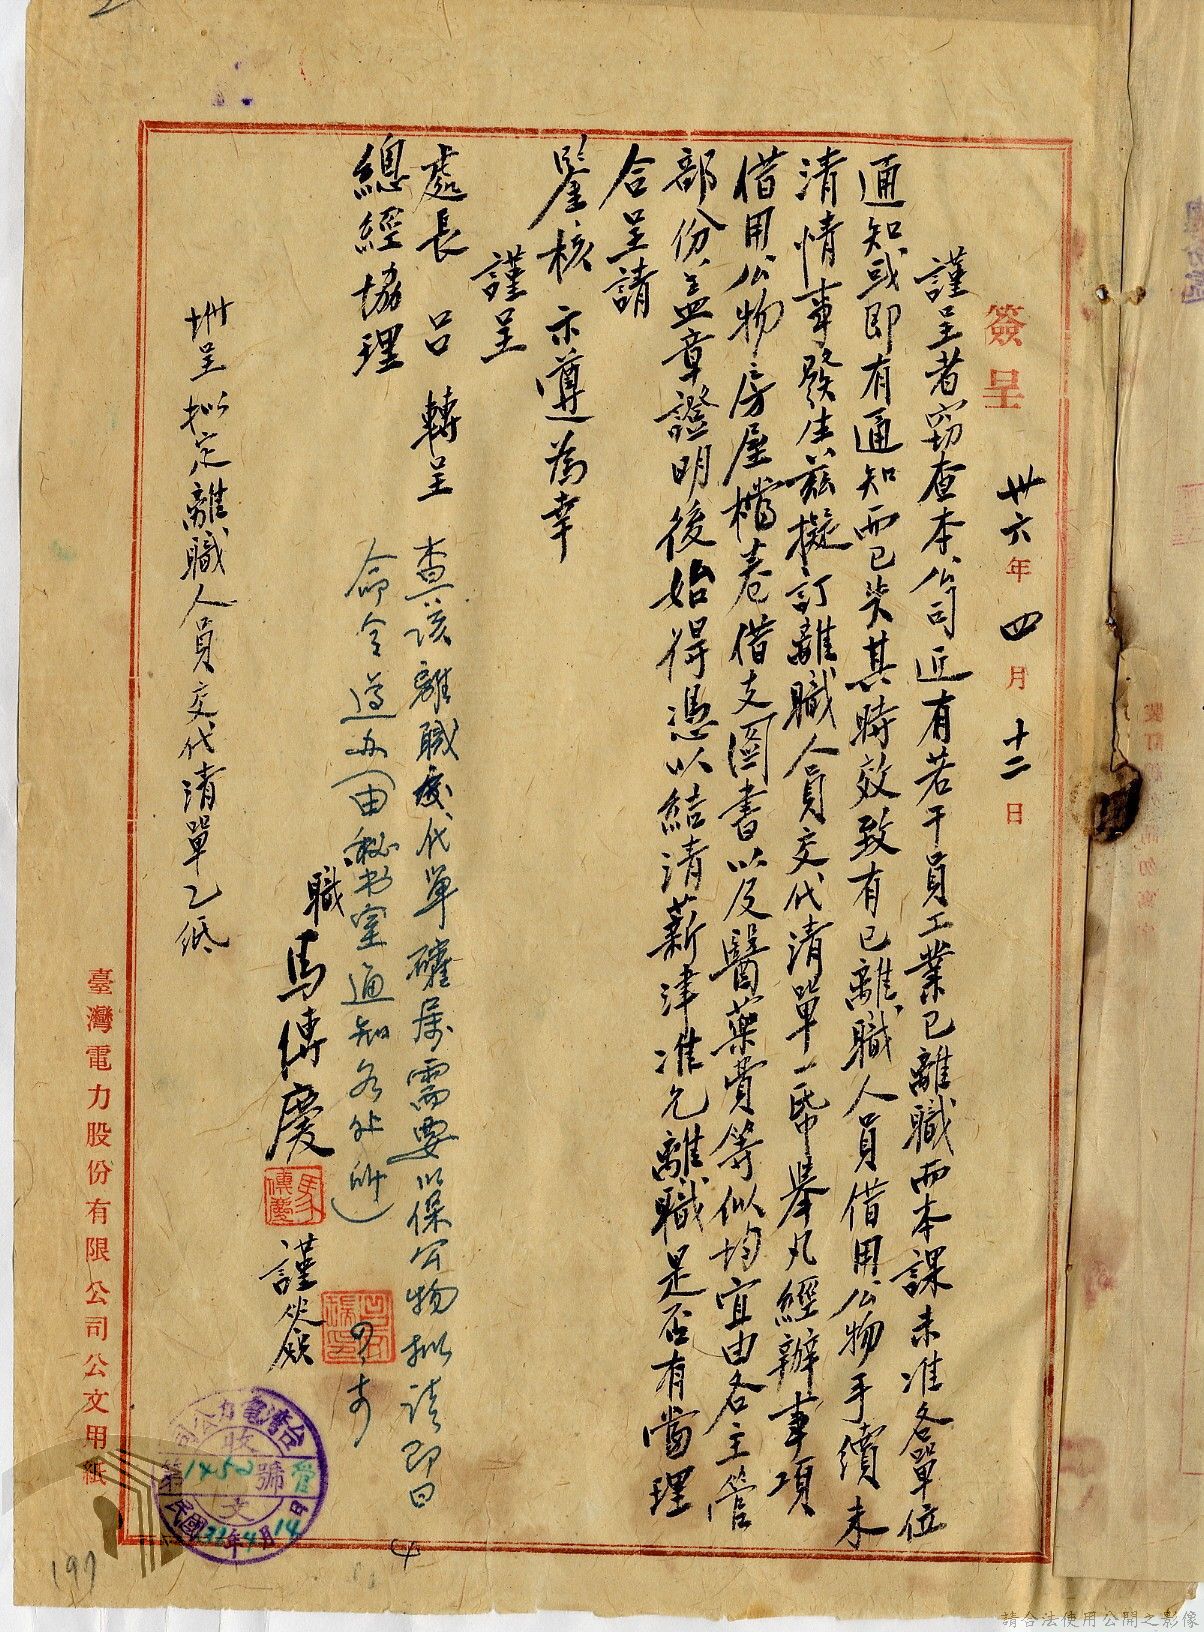 簽呈 卅六年四月十二日
謹呈者竊查本公司近有若干員工業已離職而本課未准各單位
通知或即有通知而已失其時效致有已離職人員借用公物手續未
清情事發生茲擬訂離職人員交代清單一帋舉凡經辦事項
借用公物房屋檔卷借支圖書以及醫藥費等似均宜由各主管
部份蓋章證明後始得憑以結清薪津准允離職是否有當理
合呈請
鑒核示遵為幸
謹呈
處長 呂 轉呈
總經協理
查該離職交代單確屬需要以保公物擬請即日
命令遵办(由秘书室通知各处所)
職 馬傳慶 謹簽
馬傳慶
坿呈拟定離職人員交代清單乙紙
臺灣電力股份有限公司公文用紙
台灣電力公司
收文
第1452號
民國36年4月14日
197
請合法使用公開之影像